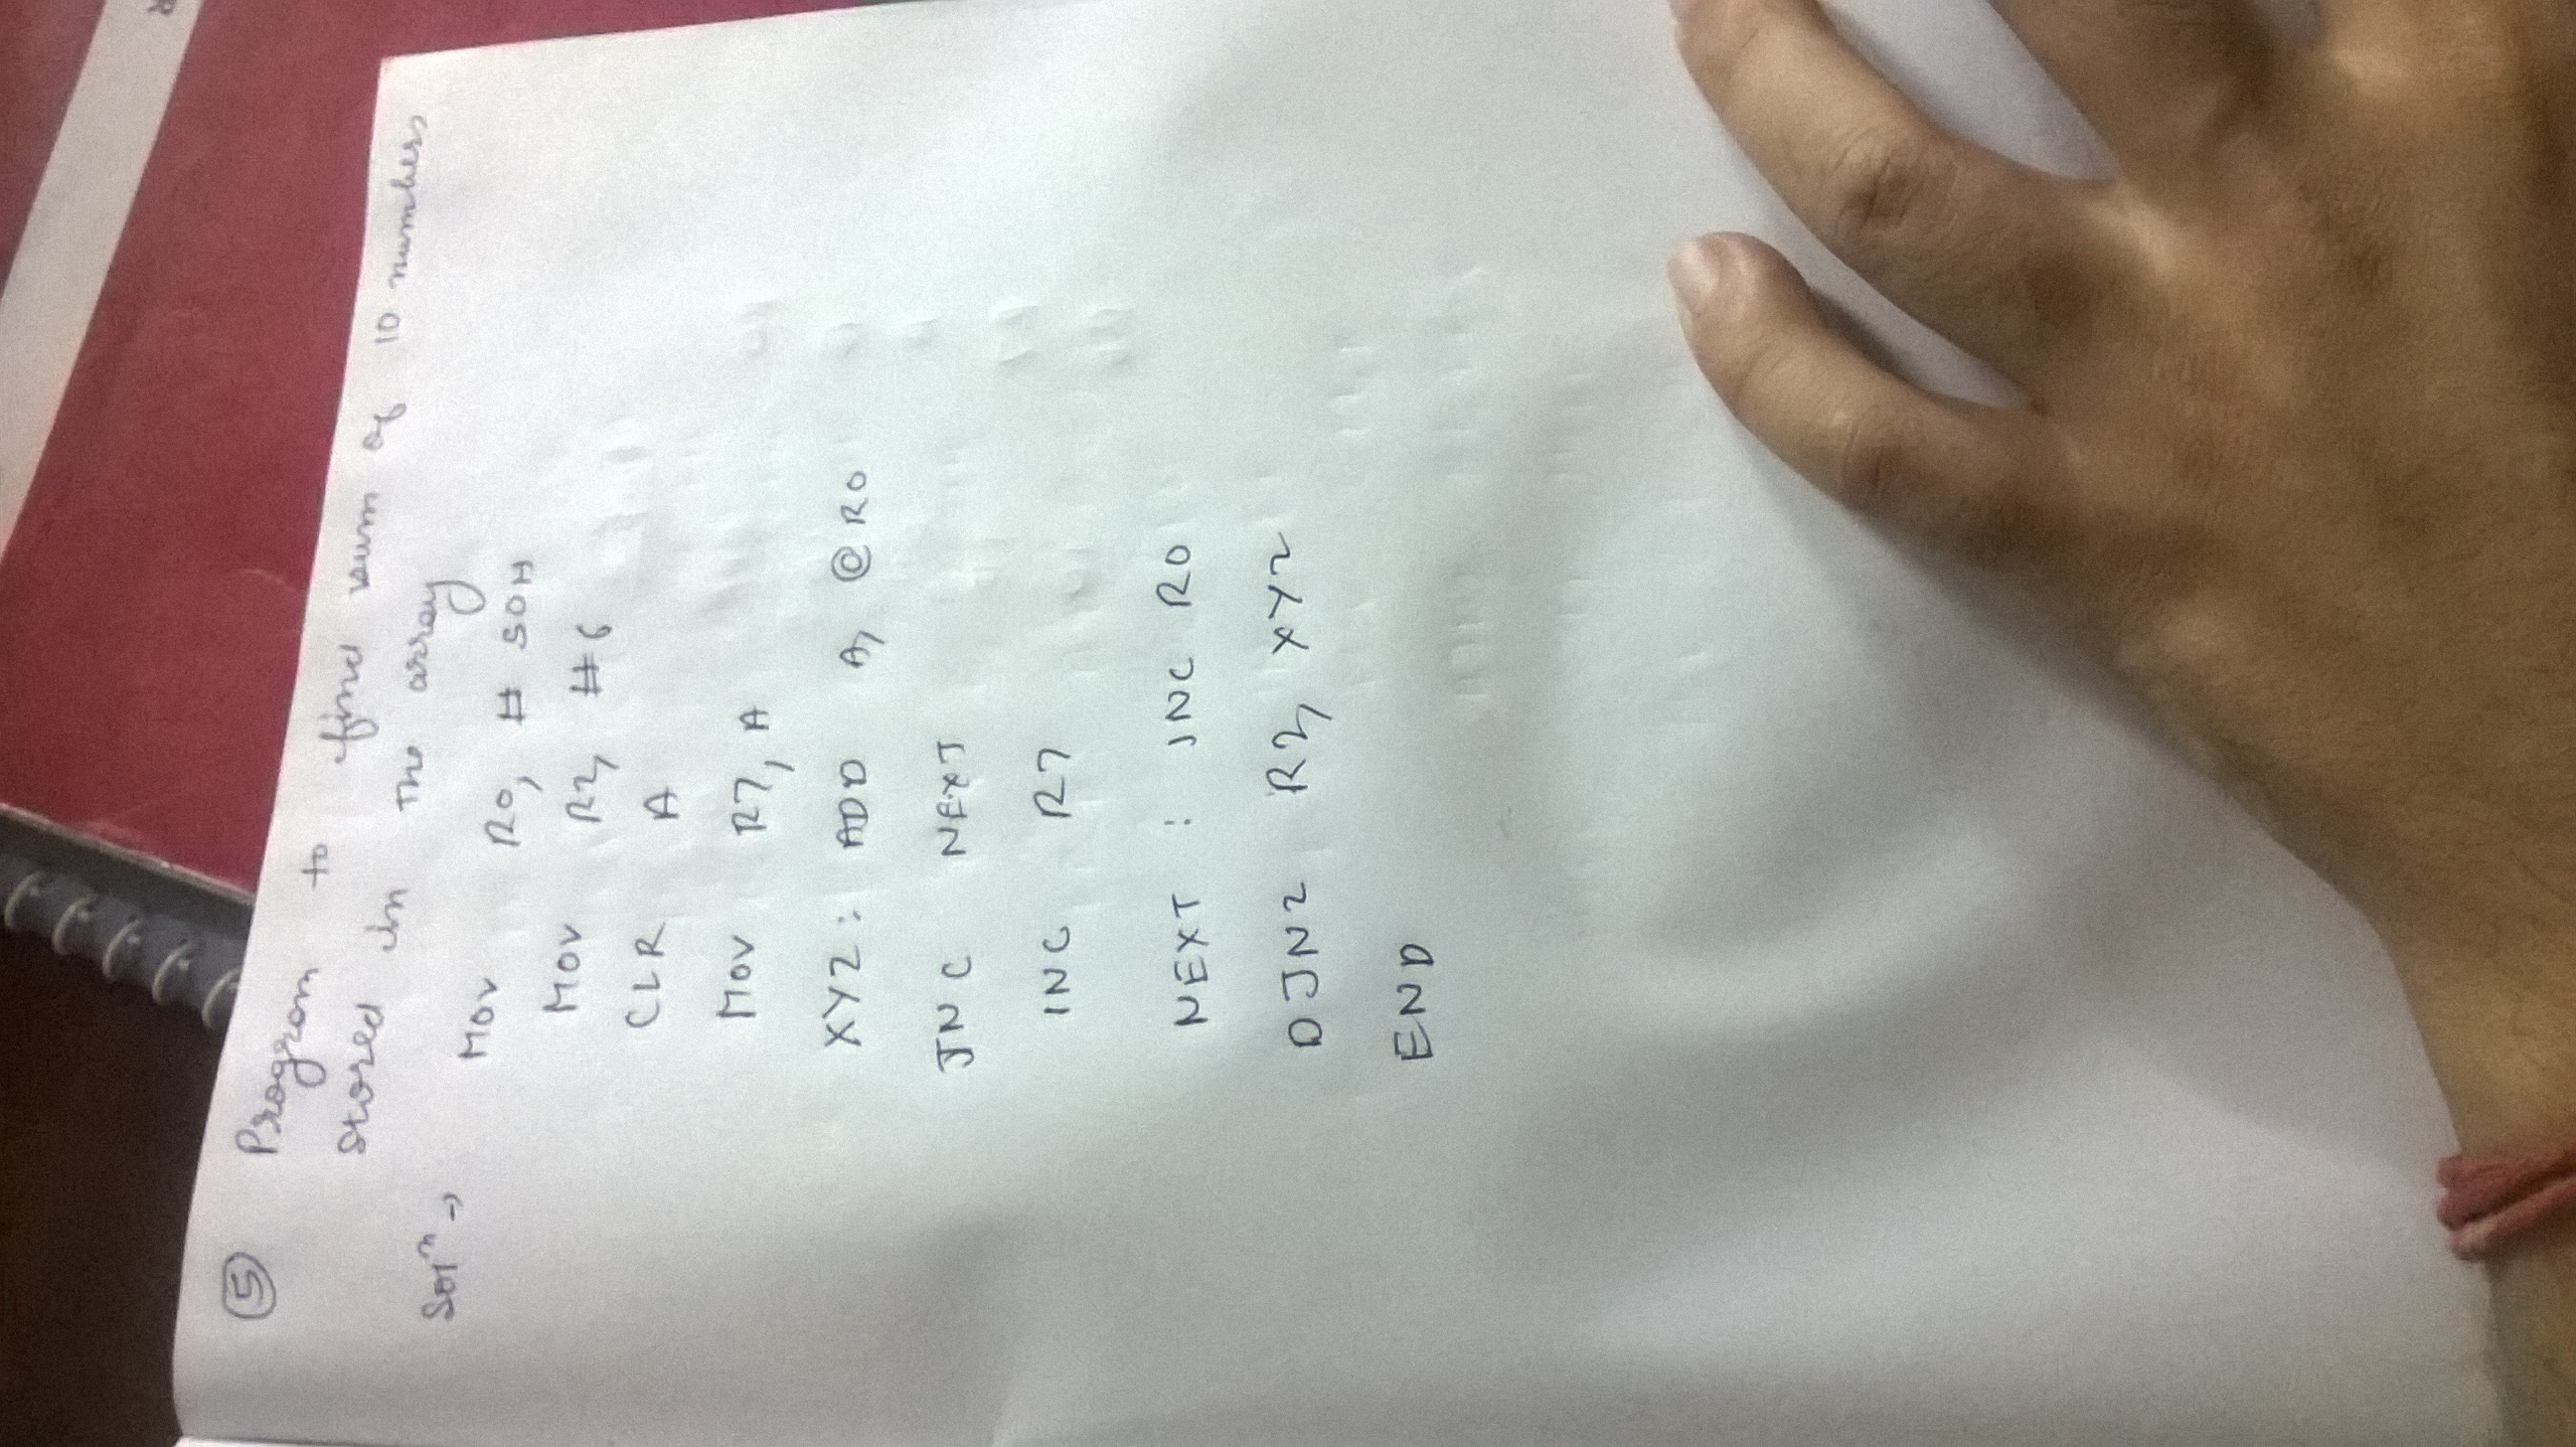 ⑤ Program to find sum of 10 numbers
stored in the array
Solⁿ →
MOV R0, # 50H
MOV R2, #6
CLR A
MOV R7, A
XYZ: ADD A, @R0
JNC NEXT
INC R7
NEXT : INC R0
DJNZ R2, XYZ
END